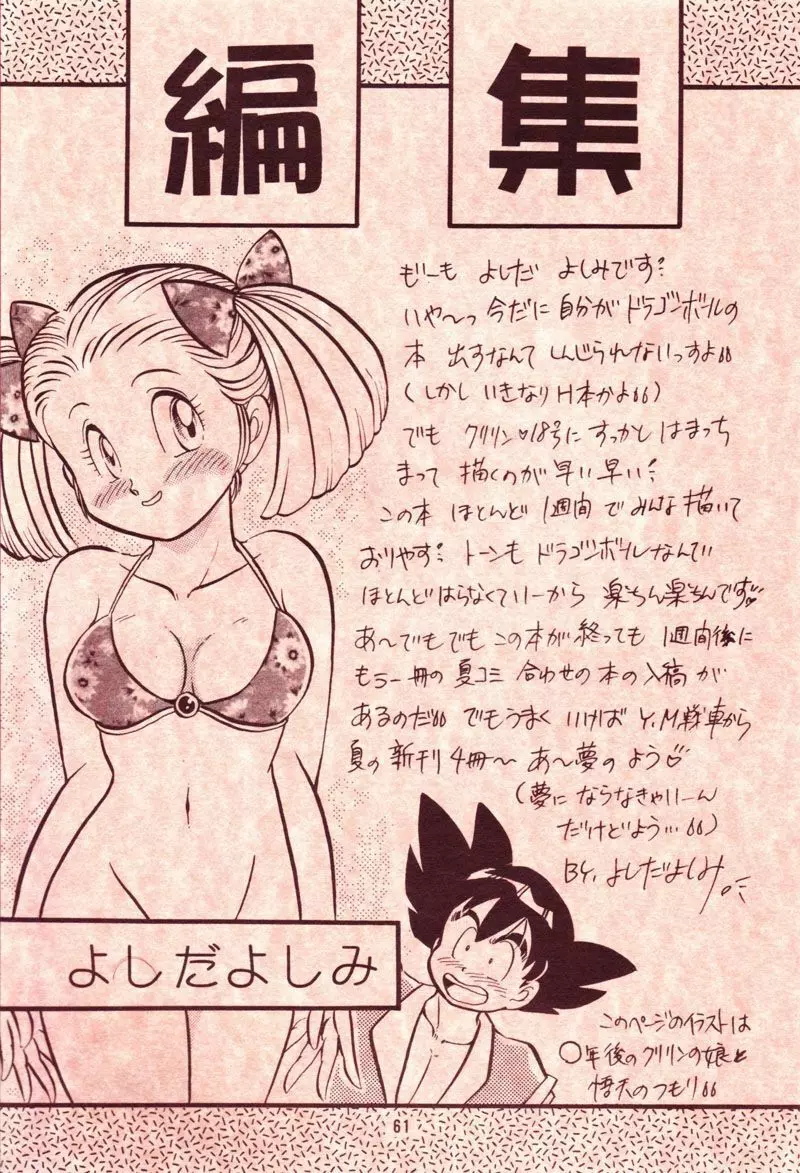 編集
もーも よしだ よしみです。
いや～っ 今だに 自分が ドラゴンボールの
本 出すなんて しんじられないっすよ
(しかし いきなり H本かよ)
でも クリリン♡18号に すっかし はまっち
まって 描くのが 早い早い。
この本 ほとんど 1週間 で みんな 描いて
おりやす。 トーンも ドラゴンボールなんてい
ほとんど はらなくていーから 楽ちん楽ちんです♡
あ～でもでも この本が 終っても 1週間後に
もう一冊の 夏コミ 合わせの 本の 入稿 が
あるのだ でも うまく いけば Y.M戦車から
夏の 新刊 4冊～ あ～夢の よう♡
(夢に ならなきゃいーん
だけどよう…)
BY. よしだよしみ
よしだよしみ
このページのイラストは
〇年後のクリリンの娘と
悟天のつもり
61